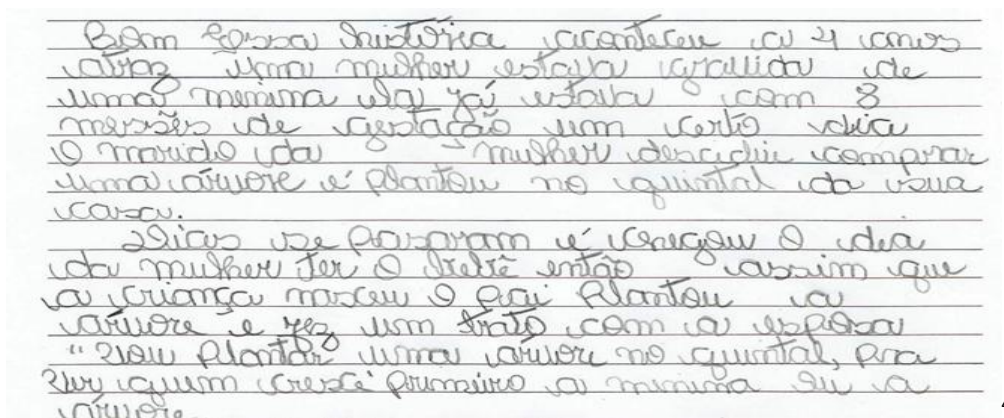 Bom essa história aconteceu a 4 anos
atraz uma mulher estava gravida de
uma menina ela já estava com 8
messês de gestação um certo dia
O marido da mulher descidiu comprar
uma árvore é plantou no quintal da sua
casa.
Dias se pasaram é chegou O dia
da mulher ter O bebê então assim que
a criança nasceu O pai plantou a
árvore e fez um trato com a esposa
"Vou plantar uma árvore no quintal, pra
ver quem cresce primeiro a menina ou a
árvore